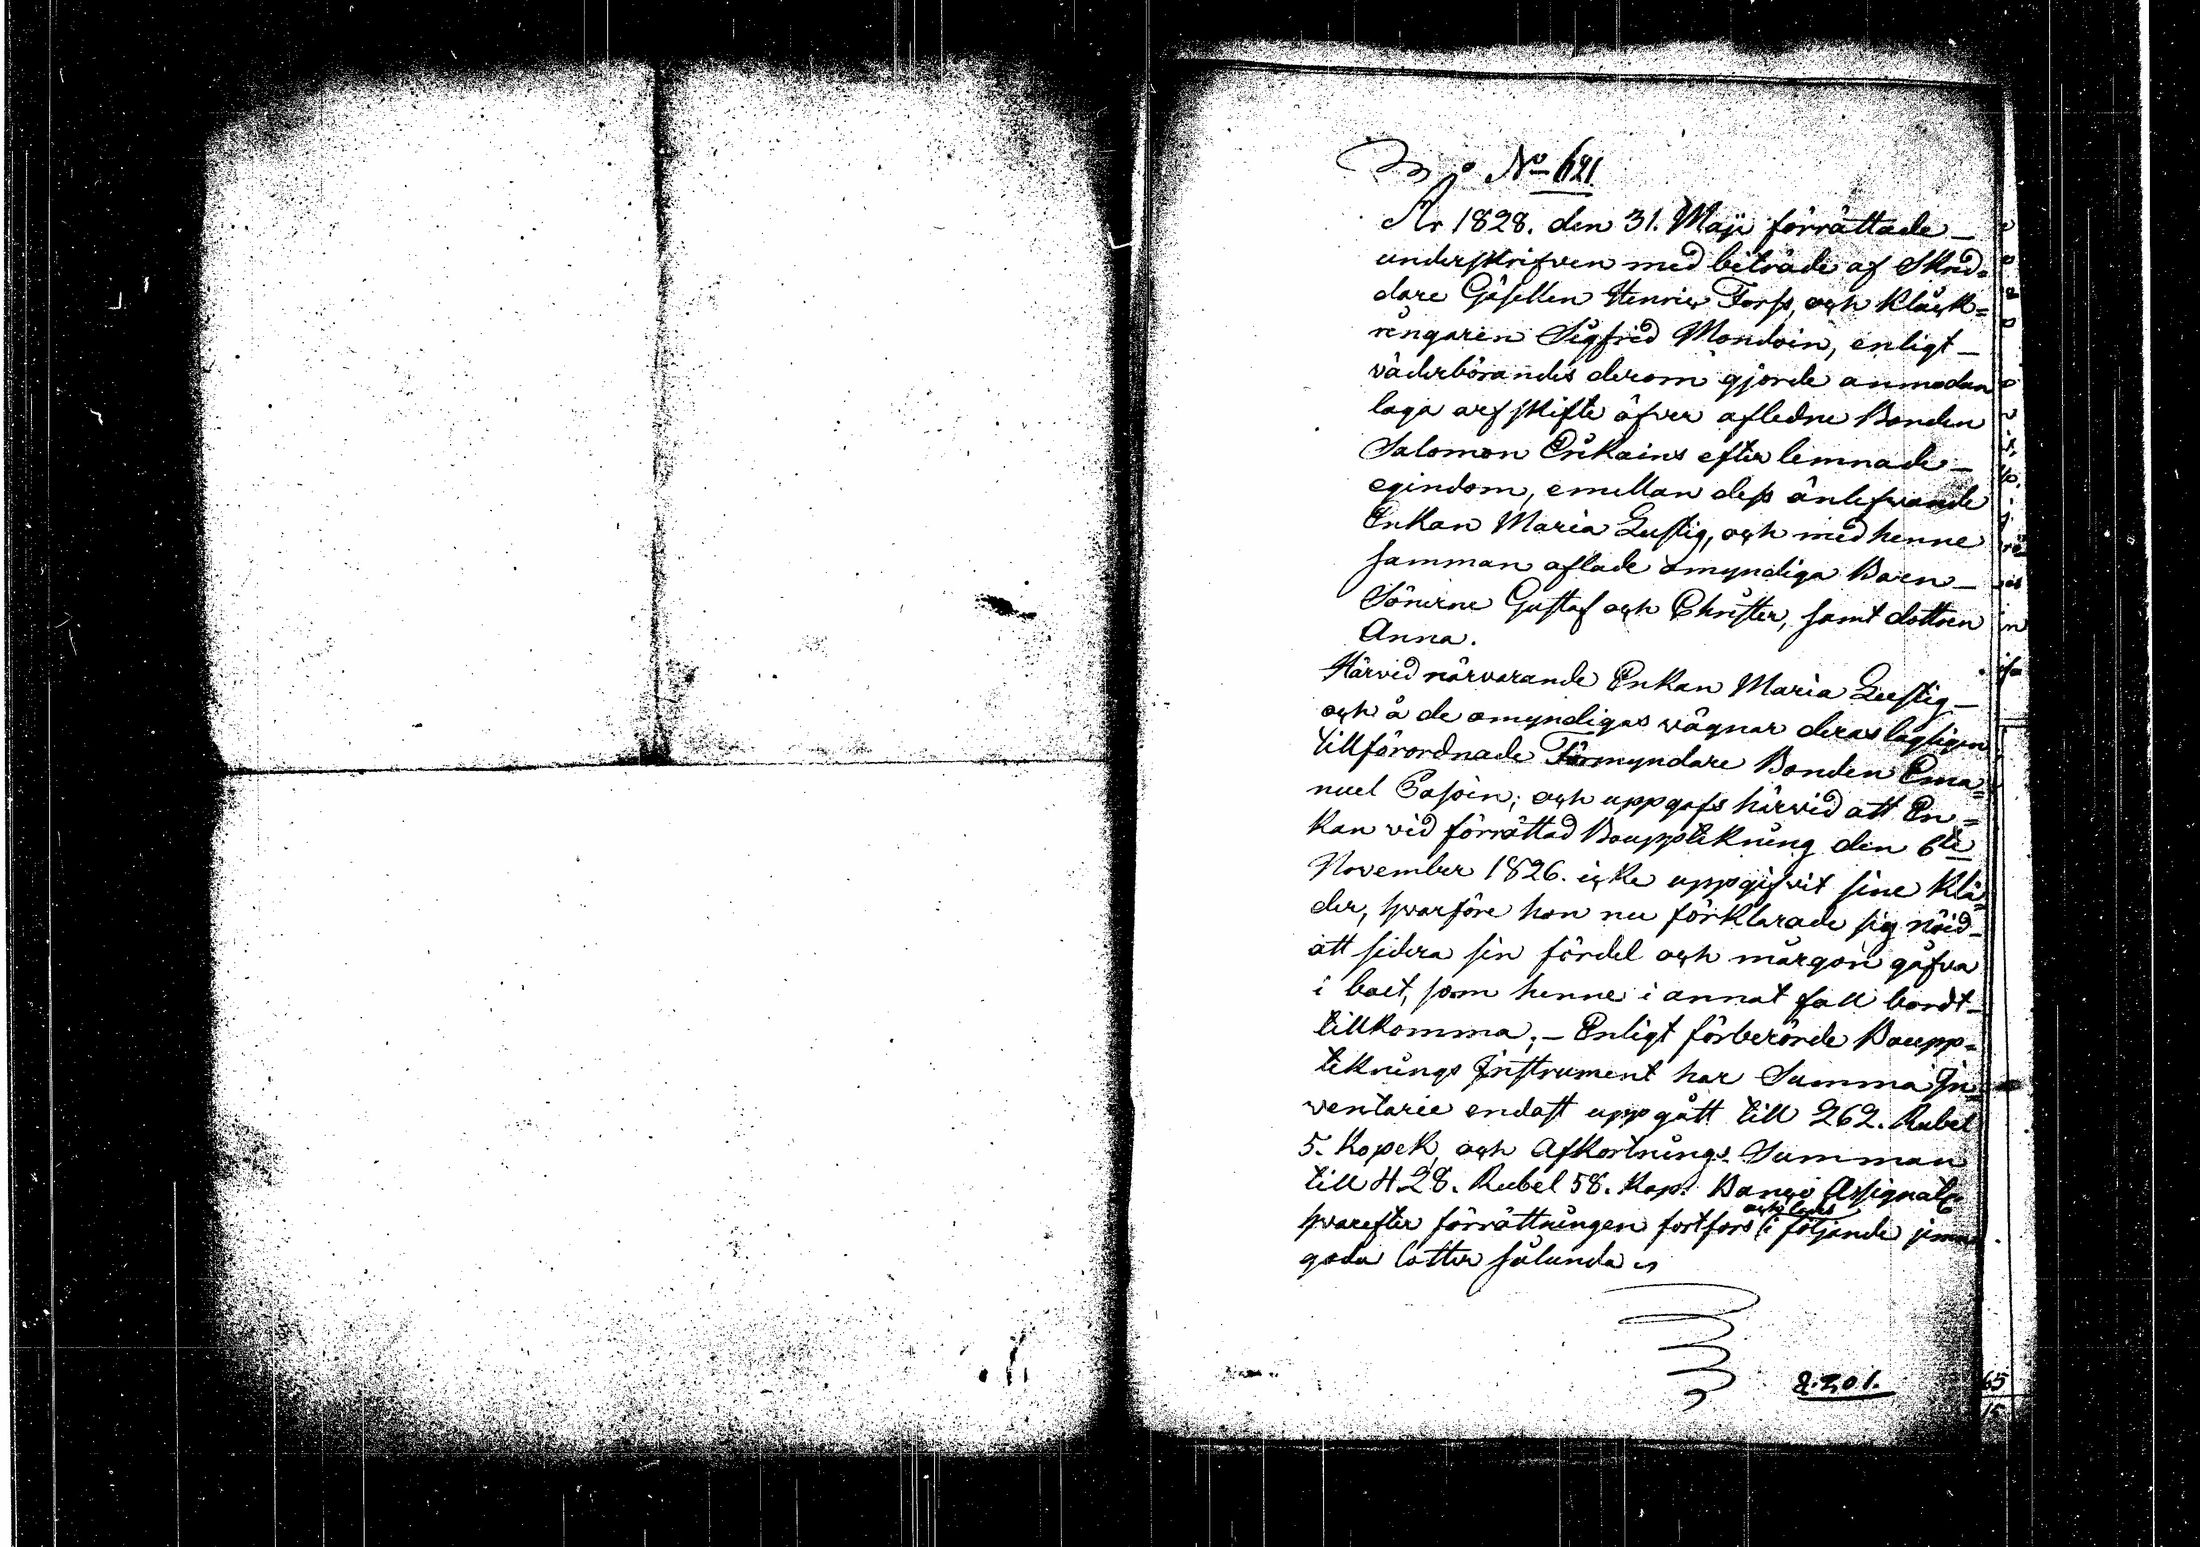 No 621
År 1828. den 31. Maji förrättade
underskrifven med biträde af Skrid-
dare Gesellen Henric Forss, och Klåck-
ringaren Sigfrid Mondoin, enligt
väderbörandes derom gjorde anmodan
laga arfskifte öfver afledne Bonden
Salomon Erikains efterlemnade
egindom, emellan dess änlefvande
Enkan Maria Lustig, och med henne
samman aflade omyndiga Barn
Sönerne Gustaf och Christer, samt dottren
Anna.
Härvid närvarande Enkan Maria Lustig
och å de omyndigas vägnar deras lagligen
tillförordnade Förmyndare Bonden Ema-
nuel ; och uppgafs härvid att En-
kan vid förrättad Bouppteknung den 6te
November 1826. icke uppgifvit sine Klä-
der, hvarföre hon nu förklarade sig nöid
att sidira sin fördel och mårgon gåfva
i boet, som henne i annat fall bordt
tillkomma. – Enligt förberörde Boupp-
teknings Instrument har Summa In-
ventarie endast uppgått till 262. Rubel
5. Kopek, och Afkortnings Summan
till 428. Rubel 58. Kop. Banco Assignat.
hvarefter förrättningen fortfors i följande
goda lotter sålunda
2.201.
65